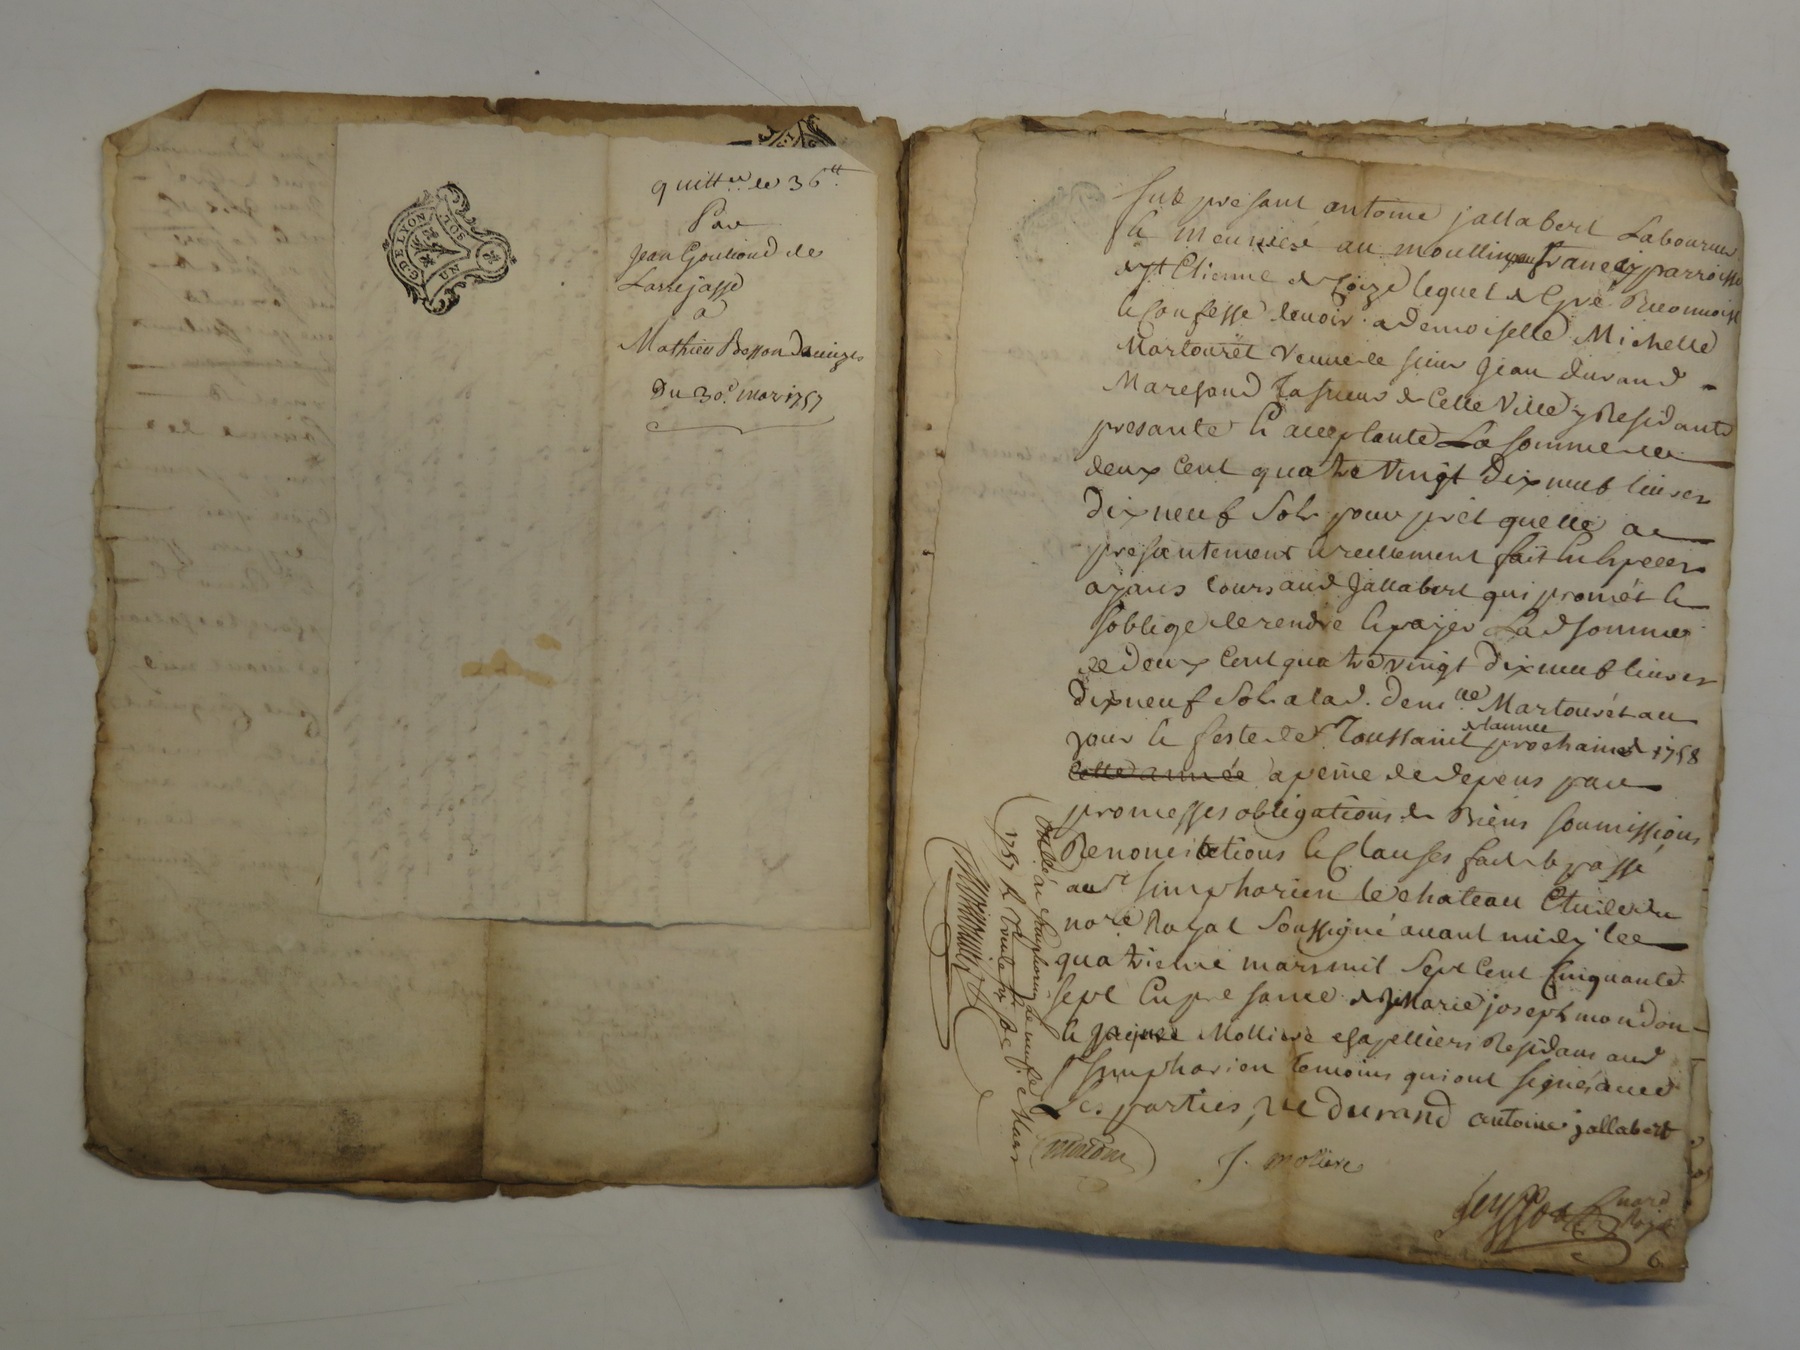 G. DE LYON
UN SOL
quitt.ce de 36tt
Par
Jean Goutiond de
Larrejasse
a
Mathieu Besson
Du 30e. mar 1757
fut présant antoine jallabert Laboureur
& meunier au moullin france parroisse
de st Etienne de Coize lequel de gré Reconnoist
& confesse devoir a Demoiselle Michelle
Martourét veuve de sieur jean durand
Marchand de Cette Ville y Residante
presante & acceptante La somme de
deux cent quatre vingt dix neuf livres
Dix neuf sols pour prét quelle a
presentement & reellement fait en especes
ayans cours aud jallabert qui promét &
soblige de rendre & payer Lad somme
de deux cent quatre vingt dix neuf livres
dix neuf sols a lad. dem.lle Martourét au
jour & feste de Toussaint de lannee prochaine 1758
cette année a peine de depens par
promesses obligations de Biens soumissions
Renonciations & Clauses fait & passé
aud st simphorien le chateau Etude du
nore Royal soussigné avant midy le
quatrieme mars mil sept cent cinquante
sept En presance de Marie joseph mondon
& jaque Molliere chapelliers Residans aud
st simphorien temoins qui ont signés avec
Les parties, ve durand antoine jallabert
mondon J. moliere
nore
Royal
6
à st simphorien le neufe Mars
1757 R Trente six sols